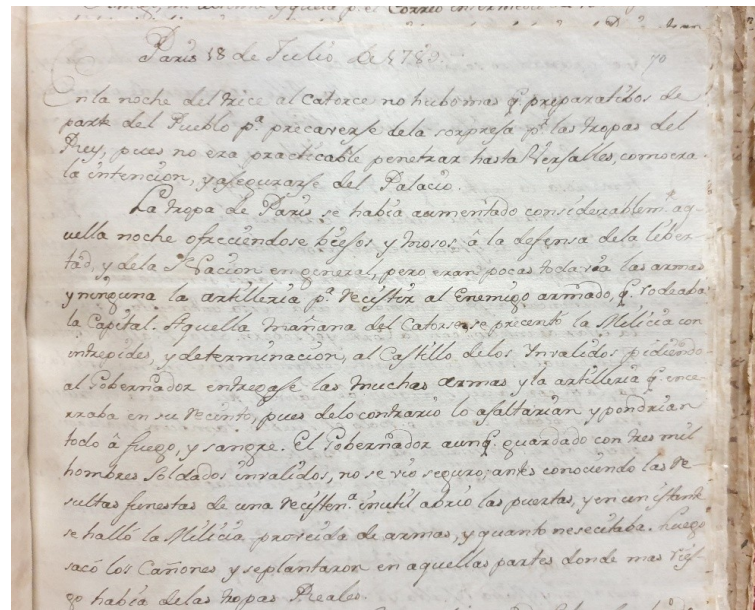 Paris 18 de Julio de 1789.
70
En la noche del trece al catorce no hubo mas q. preparatibos de
parte del Pueblo pa. precaverse dela sorpresa pr. las tropas del
Rey, pues no era practicable penetrar hasta Versalles, como era
la intencion, y asegurarse del Palacio.
La tropa de Paris se habia aumentado considerablemte. aq-
uella noche ofreciendose biejos y mosos â la defensa dela liber-
tad, y dela Nacion en general, pero eran pocas toda via las armas
y ninguna la artilleria pa. recistir al Enemigo armado, q. rodeaba
la Capital. Aquella mañana del Catorse se precentó la Milicia con
intrepides, y determinacion, al Castillo delos Invalidos pidiendo
al Gobernador entregase las muchas armas y la artilleria q. ence-
rraba en su recinto, pues delo contrario lo asaltarian y pondrian
todo â fuego, y sangre. El Gobernador aunq. guardado con tres mil
hombres Soldados invalidos, no se vio seguro; antes conociendo las re-
sultas funestas de una recistena. inutil abrio las puertas, y en un istante
se halló la Milicia proveida de armas, y quanto nesecitaba. Luego
sacó los Cañones y se plantaron en aquellas partes donde mas ries-
go habia delas tropas Reales.